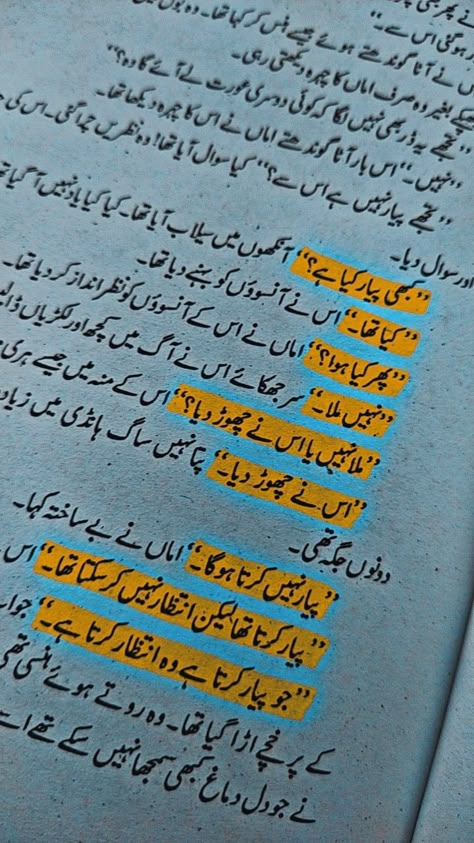 نے آٹا گوندھتے ہوئے جیسے ہنس کر کہا تھا۔ وہ
بغیر وہ صرف اماں کا چہرہ دیکھتی رہی۔
"تجھے یہ ڈر بھی نہیں لگا کہ کوئی دوسری عورت لے آئے گا وہ؟"
"نہیں۔" اس بار آٹا گوندھتے اماں نے اس کا چہرہ دیکھا تھا۔
"تجھے پیار نہیں ہے اس سے؟" کیا سوال آیا تھا! وہ نظریں چرا گئی۔ اس کی
اور سوال دیا۔
"کبھی پیار کیا ہے؟" آنکھوں میں سیلاب آیا تھا۔ کیا کیا یاد نہیں آ گیا تھا
"کیا تھا۔" اس نے آنسوؤں کو بہنے دیا تھا۔
"پھر کیا ہوا؟" اماں نے اس کے آنسوؤں کو نظر انداز کر دیا تھا۔
"نہیں ملا۔" سر جھکائے اس نے آگ میں کچھ اور لکڑیاں ڈالیں
"ملا نہیں یا اس نے چھوڑ دیا؟" اس کے منہ میں جیسے ہری
"اس نے چھوڑ دیا۔" پتا نہیں ساگ ہانڈی میں زیادہ
دونوں جگہ تھی۔
"پیار نہیں کرتا ہو گا۔" اماں نے بے ساختہ کہا۔
"پیار کرتا تھا لیکن انتظار نہیں کر سکتا تھا۔" اس
"جو پیار کرتا ہے وہ انتظار کرتا ہے۔" جواب
کے پرخچے اڑا گیا تھا۔ وہ روتے ہوئے ہنسی تھی
نے جو دل و دماغ کبھی سمجھا نہیں سکے تھے اسے